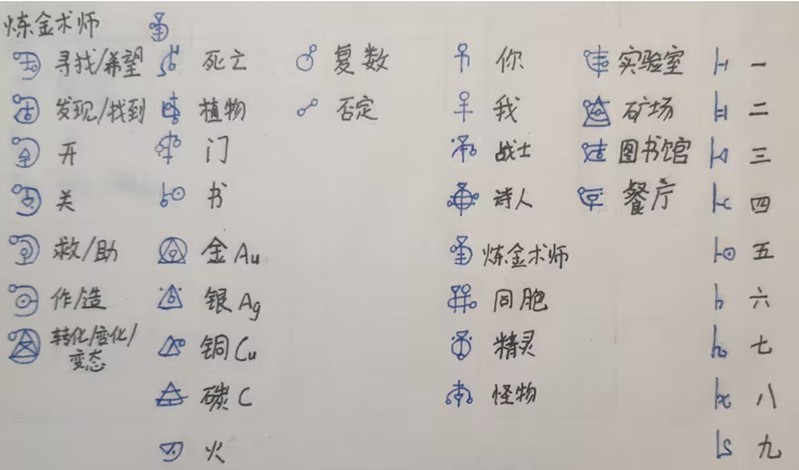 炼金术师
寻找/希望 死亡 复数 你 实验室 一
发现/找到 植物 否定 我 矿场 二
开 门 战士 图书馆 三
关 书 诗人 餐厅 四
救/助 金Au 炼金术师 五
作/造 银Ag 同胞 六
转化/变化/ 铜Cu 精灵 七
变态
碳C 怪物 八
火 九